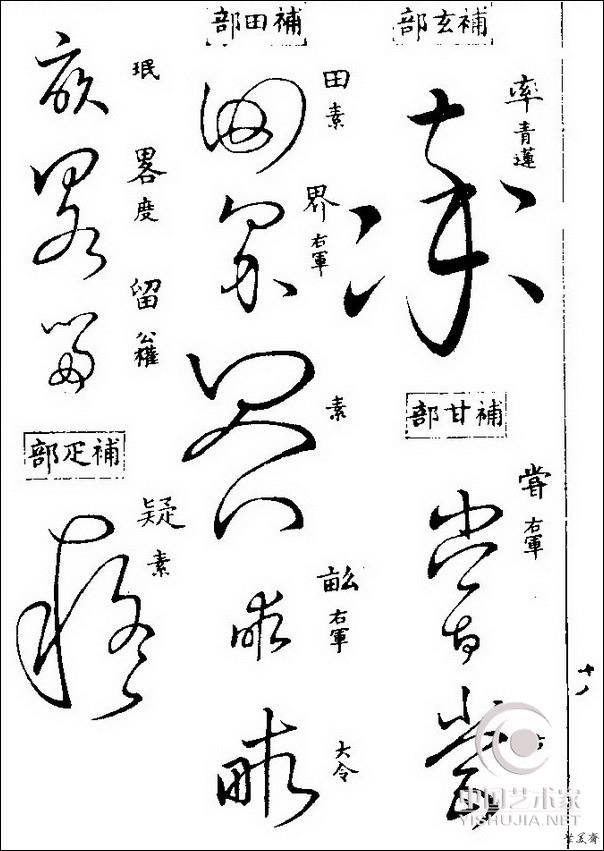 補玄部
率 青蓮
補甘部
嘗 右軍
補田部
田 素
界 右軍
素
畝 右軍
大令
珉
畧 度
留 公權
補疋部
疑 素
十八
中国艺术家
YISHUJIA.NET